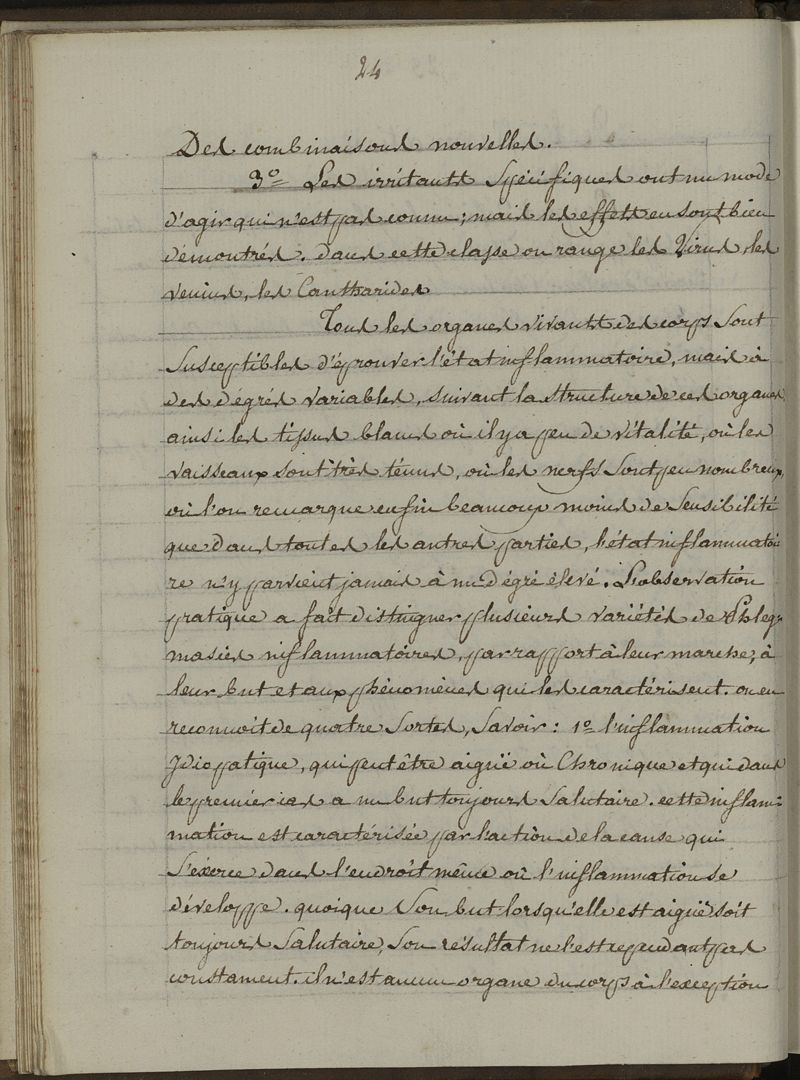 24
Des combinaisons nouvelles.
3º= Les irritants Spécifiques ont un mode
d'agir qui n'est pas connu; mais les effets en sont bien
démontrés. dans cette classe on range les Virus, les
venins, les Cantharides
Tous les organes vivants des corps Sont
Susceptibles d'éprouver l'état inflammatoire, mais à
des dégrés variables, suivant la structure de ces organes
ainsi les tissus blancs où il y a peu de vitalité, où les
vaisseaux sont très ténus, où les nerfs Sont peu nombreux,
où l'on remarque enfin beaucoup moins de Sensibilité
que dans toutes les autres parties, l'état inflammatoi
re n'y parvient jamais à un dégré élevé. L'observation
pratique a fait distinguer plusieurs variétés de Phleg=
masies inflammatoires, par rapport à leur marche, à
leur but et aux phénomènes qui les caractérisent. on en
reconnoit de quatre Sortes, Savoir: 1º= l'inflammation
Idiopatique, qui peut être aiguë où Chronique et qui dans
le premier cas a un but toujours Salutaire. cette inflam=
mation est caractérisée par l'action de la cause qui
S'éxerce dans l'endroit même où l'inflammation se
développe. quoique Son but lorsqu'elle est aiguë soit
toujours Salutaire, Son résultat ne l'est cependant pas
constament. il n'est aucun organe du corps à l'exception